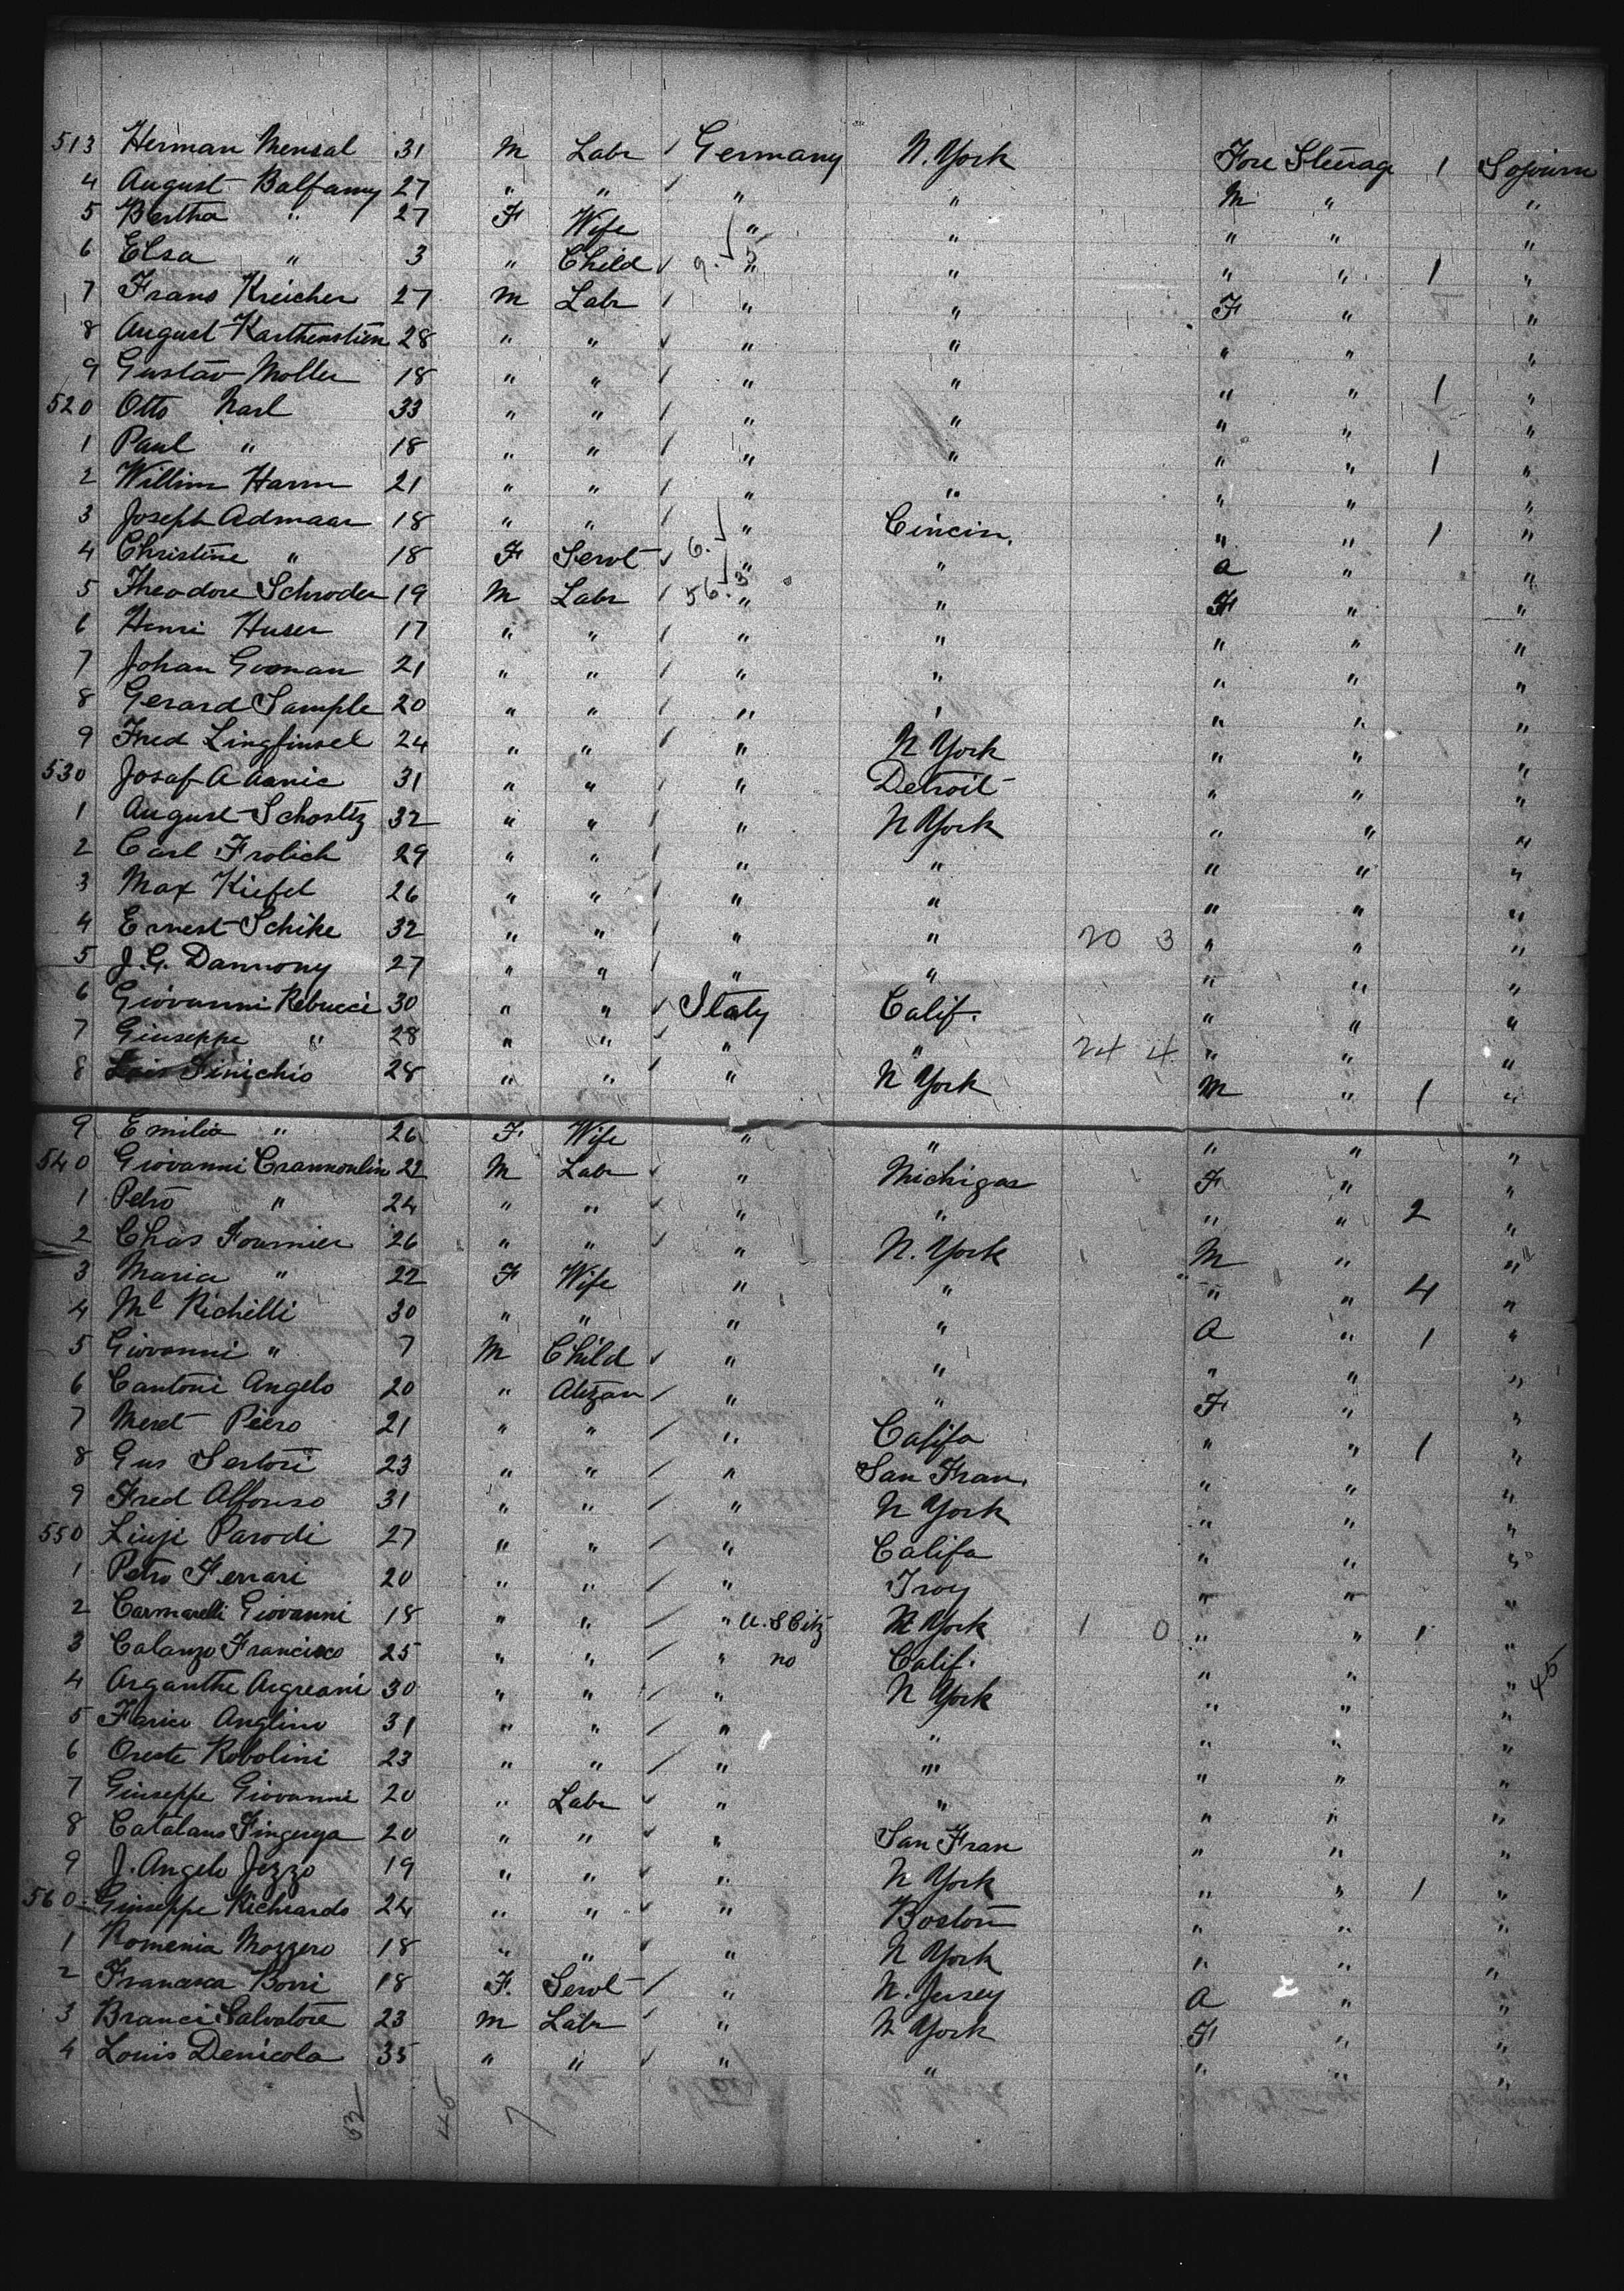 513 Herman Mensal 31 M Labr / Germany N. York Fore Steerage 1 Sojourn
4 August Balfamy 27 " " ✓ " " M " "
5 Bertha " 27 F Wife " " " " "
6 Elsa " 3 " Child ✓ " " " " 1 "
7 Frans Kreicher 27 M Labr / " " F " "
8 August Karthenstien 28 " " ✓ " " " " "
9 Gustav Moller 18 " " / " " " " 1 "
520 Otto Narl 33 " " / " " " " "
1 Paul " 18 " " / " " " " 1 "
2 Willim Harm 21 " " / " " " " "
3 Joseph Admaar 18 " " / " Cincin. " " 1 "
4 Christine " 18 F Servt ✓ 6. " " a " "
5 Theodore Schroder 19 M Labr / 56.3 " " F " "
6 Henri Huser 17 " " / " " " " "
7 Johan Gooman 21 " " / " " " " "
8 Gerard Sample 20 " " / " " " " "
9 Fred Lingfinsel 24 " " / " N York " " "
530 Josaf Aaanic 31 " " / " Detroit " " "
1 August Schosltz 32 " " / " N York " " "
2 Carl Frolich 29 " " / " " " " "
3 Max Kiefel 26 " " / " " " " "
4 Ernest Schike 32 " " / " " 20 3 " " "
5 J. G. Dannony 27 " " / " " " " "
6 Giovanni Rebucci 30 " " ✓ Italy Calif. " " "
7 Giuseppe " 28 " " ✓ " " 24 4 " " "
8 Finichio 28 " " / " N York M " 1 "
9 Emilia " 26 F Wife " " " " "
540 Giovanni Crannonlin 22 M Labr ✓ " Michigan F " "
1 Petro " 24 " " ✓ " " " " 2 "
2 Chas Fournier 26 " " ✓ " N. York M " "
3 Maria " 22 F Wife " " " " 4 "
4 Ml Richelli 30 " " " " a " 1 "
5 Giovanni " 7 M Child ✓ " " " " "
6 Cantoni Angelo 20 " Atizan / " " F " "
7 Meret Piero 21 " " / " Califa " " 1 "
8 Gus Sertori 23 " " / " San Fran. " " "
9 Fred Alfonso 31 " " / " N York " " "
550 Liuji Parodi 27 " " / " Califa " " "
1 Petro Ferrari 20 " " / " Troy " " "
2 Carmarelli Giovanni 18 " " / " U.S Citz N York 1 0 " " 1 "
3 Calanzo Francisco 25 " " / " no Calif. " " "
4 Arganthe Argreani 30 " " / " N York " " " 45
5 Farico Anglino 31 " " / " " " " "
6 Oreste Robolini 23 " " / " " " " "
7 Giuseppe Giovanni 20 " Labr ✓ " " " " "
8 Catalans Fingerga 20 " " ✓ " San Fran " " "
9 J. Angelo Jezzo 19 " " ✓ " N York " " 1 "
560 Giuseppe Richiardo 24 " " ✓ " Boston " " "
1 Romenia Mozzero 18 " " ✓ " N York " " "
2 Francisca Borri 18 F. Servt / " N. Jersey a " "
3 Branci Salvatore 23 M Labr / " N York F " "
4 Louis Denicola 35 " " ✓ " " " " "
53 46 7